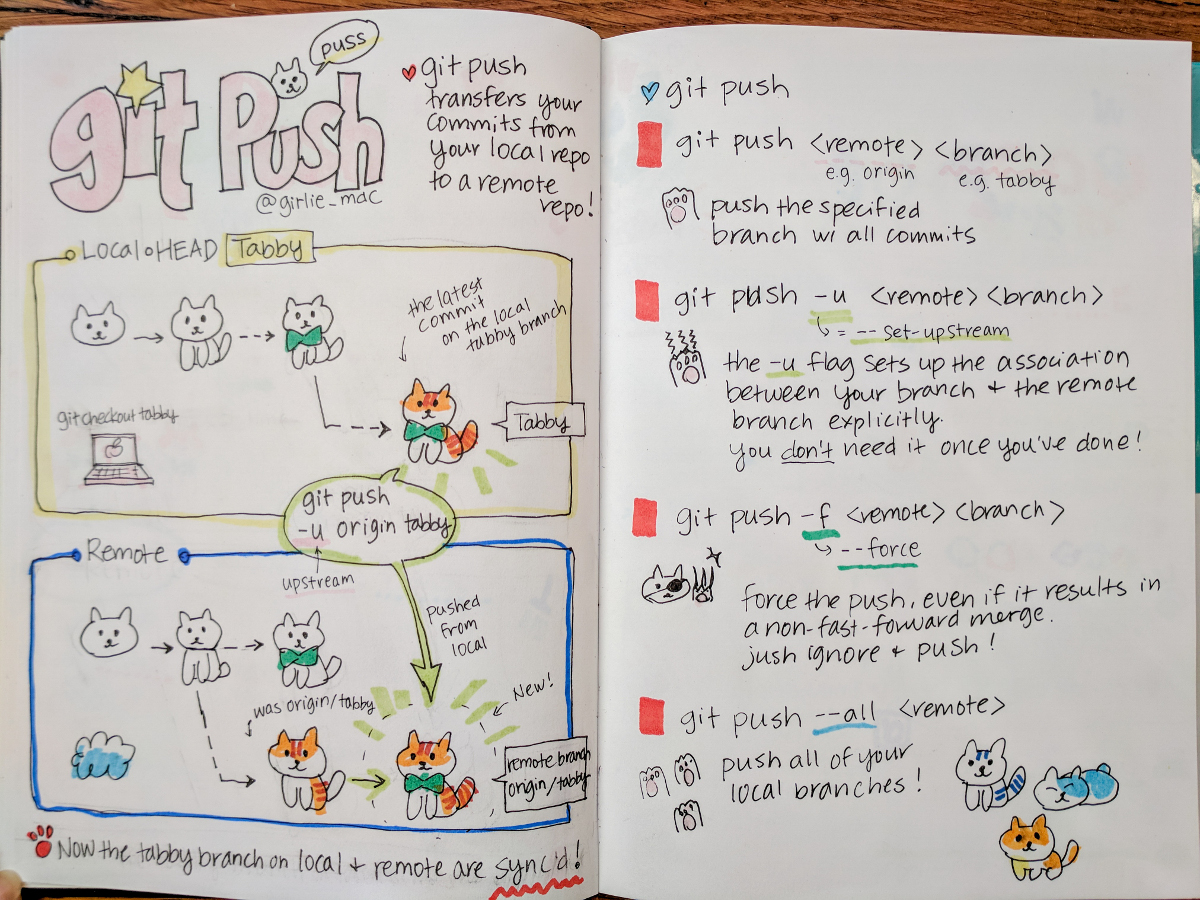 git Push
puss
@girlie_mac
git push
transfers your
commits from
your local repo
to a remote
repo!
Local HEAD Tabby
the latest
commit
on the local
tabby branch
git checkout tabby
Tabby
git push
-u origin tabby
upstream
Remote
pushed
from
local
was origin/tabby
New!
remote branch
origin/tabby
Now the tabby branch on local + remote are sync'd!
git push
git push <remote> <branch>
e.g. origin
e.g. tabby
push the specified
branch w/ all commits
git push -u <remote> <branch>
= --set-upstream
the -u flag sets up the association
between your branch + the remote
branch explicitly.
you don't need it once you've done!
git push -f <remote> <branch>
--force
force the push, even if it results in
a non-fast-forward merge.
jush ignore + push!
git push --all <remote>
push all of your
local branches!